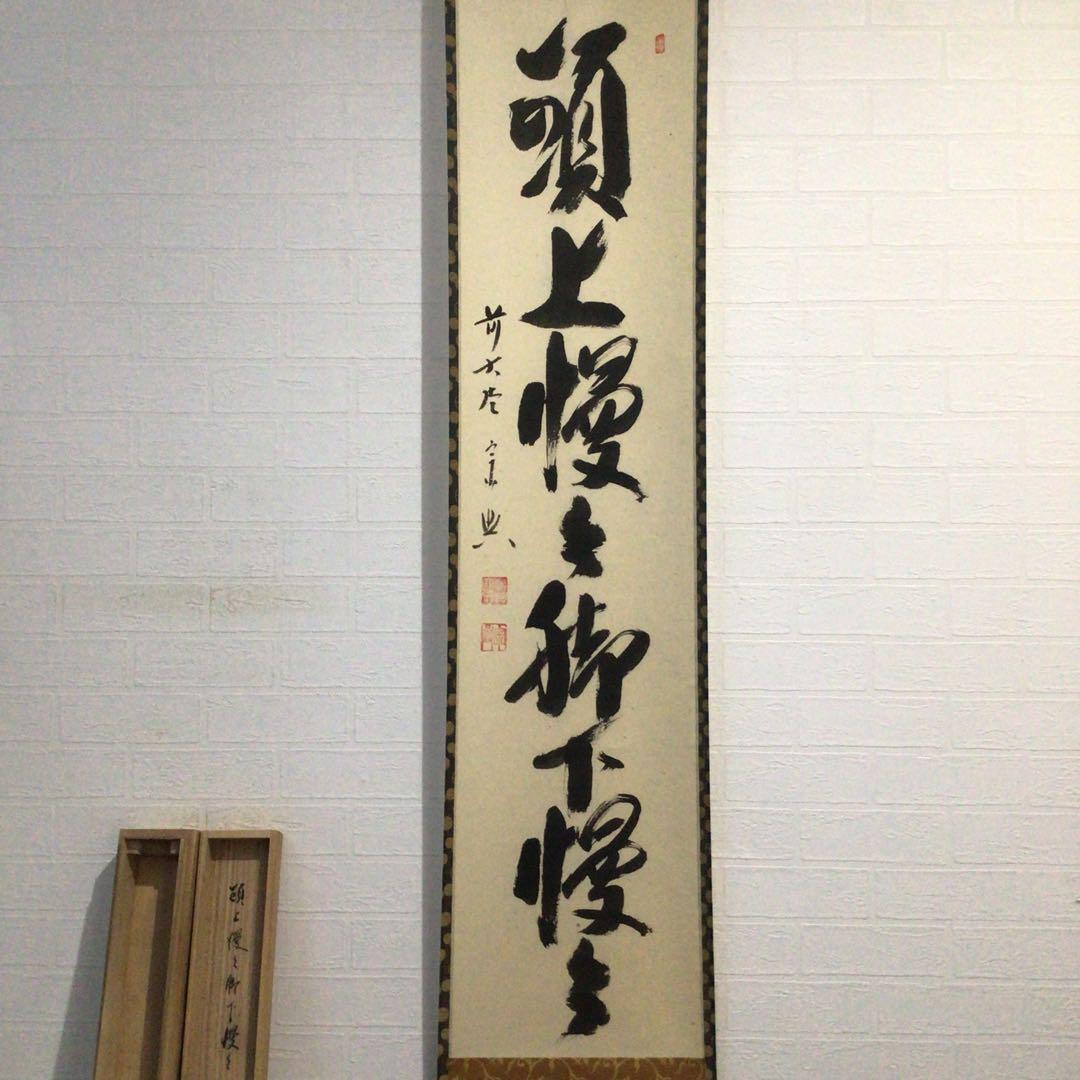 頭上慢々脚下慢々
前大徳 宗典
頭上慢々脚下慢々